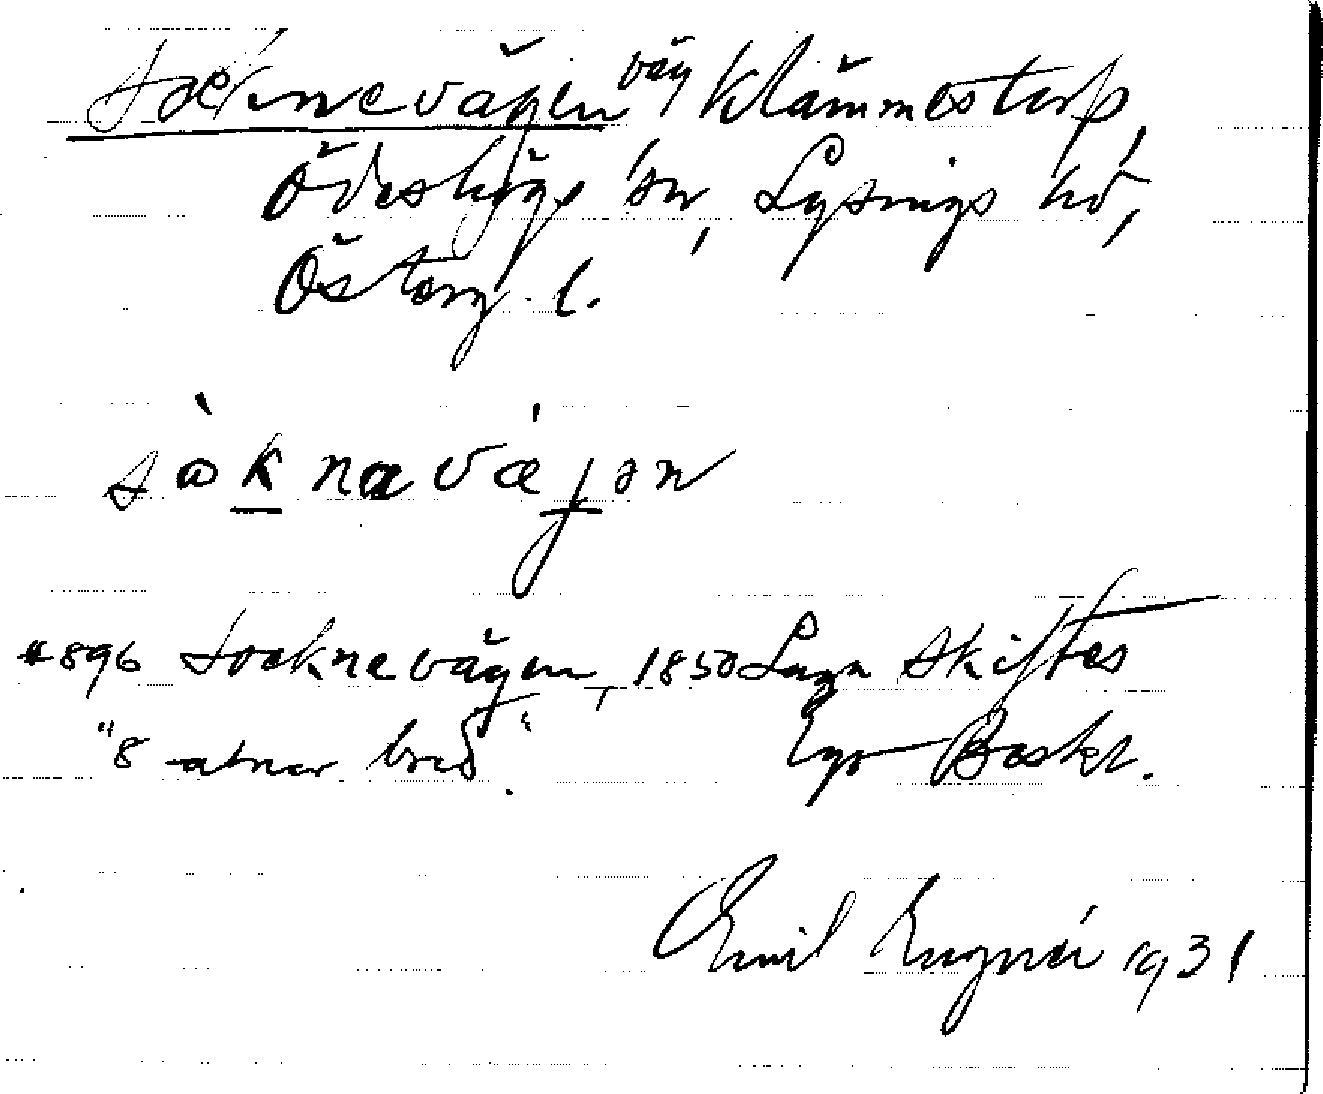 Socknevägen väg Klämmestorp,
Ödeshögs sn, Lysings hd,
Österg. l.
såknavæjən
#896 Socknevägen, 1850 Laga Skiftes
"8 alnar bred". Egobeskr.
Emil 1931